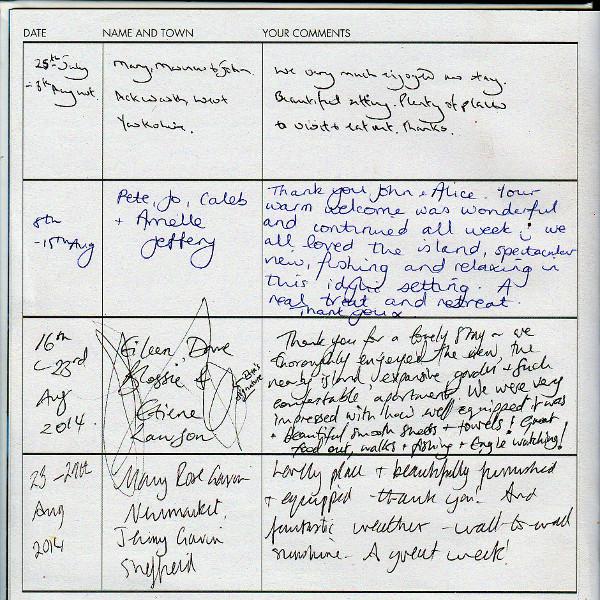 DATE NAME AND TOWN YOUR COMMENTS
25th July
- 8th August.
Mary, Maurice & John.
Ackworth West
Yorkshire.
We very much enjoyed our stay.
Beautiful setting. Plenty of places
to visit & eat out. Thanks.
8th
- 15th Aug
Pete, Jo, Caleb
+ Amelie
Jeffery
Thank you John & Alice. Your
warm welcome was wonderful
and continued all week; we
all loved the island, spectacular
view, fishing and relaxing in
this idyllic setting. A
real treat and retreat.
Thank you x
16th
- 23rd
Aug
2014.
Eileen Dave
Blossie &
Etiene
Lawson
signature
Thank you for a lovely stay - we
thoroughly enjoyed the view, the
nearby island, expansive garden & such
comfortable apartment. We were very
impressed with how well equipped it was
+ beautiful smooth sheets + towels! Great
food out, walks + fishing + Eagle watching!
23 - 29th
Aug
2014
Mary Rose Gavin
Newmarket.
Jenny Gavin
Sheffield
Lovely place & beautifully furnished
& equipped - thank you! And
fantastic weather - wall-to-wall
sunshine. A great week!